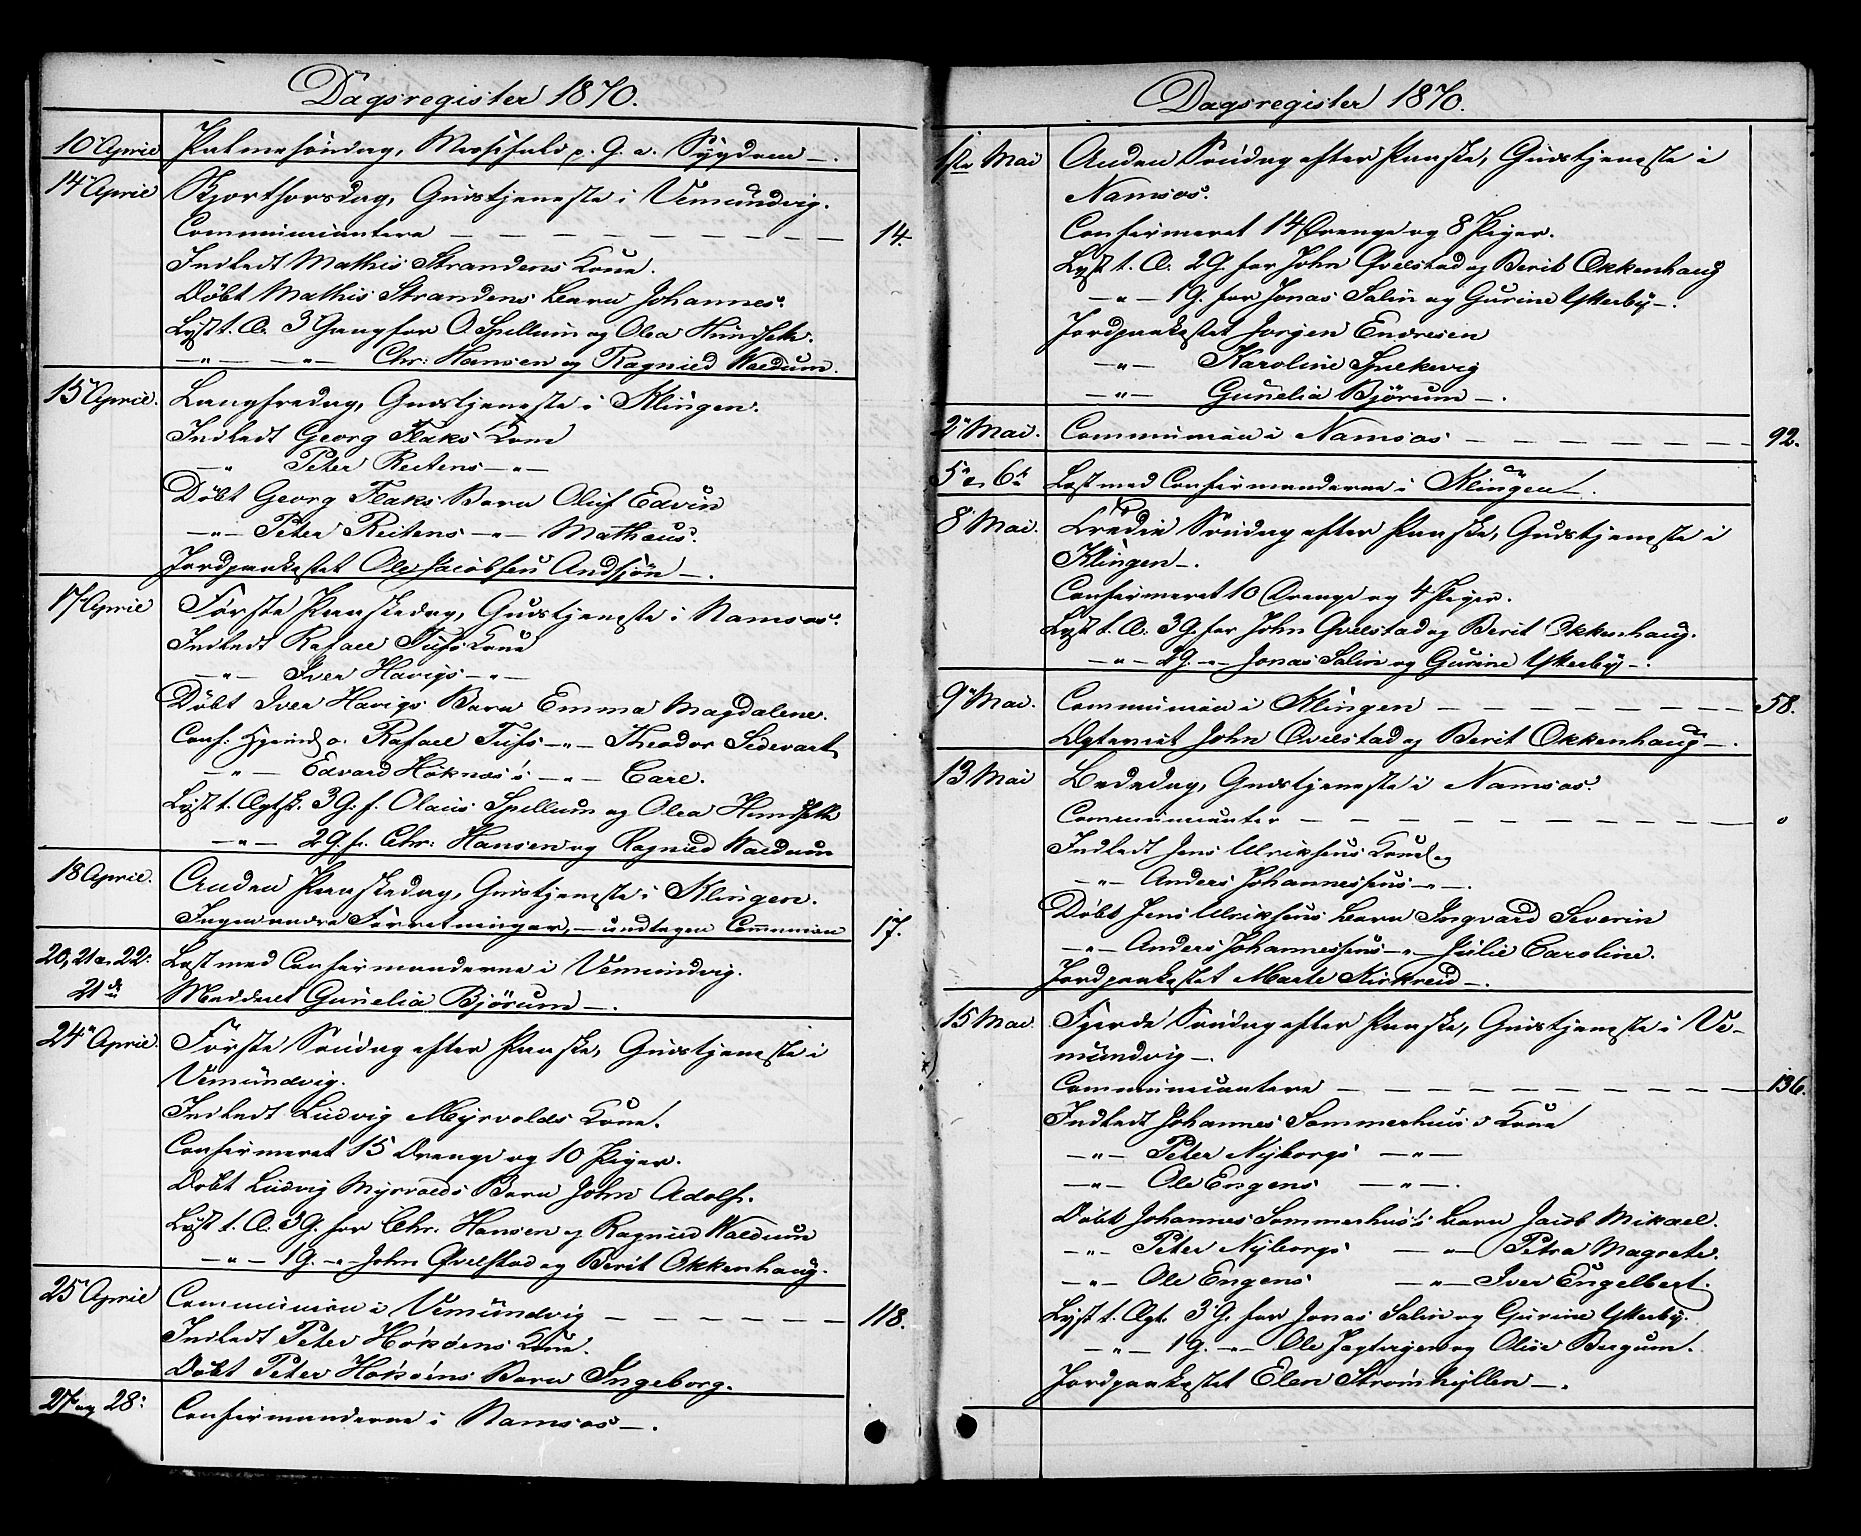 Dagsregister 1870.
10 April Palmesöndag, Messefald p. G. a. Sygdom —.
14 April Skjærthorsdag, Gudstjeneste i Vemundvig.
Communicantere — — — — — — — — 14.
Indledt Mathis Strandens Kone.
Döbt Mathis Strandens Barn Johannes.
Lyst t. Æ. 3 Gang for O. Spillum og Olea Hundseth.
—"— —"— Chr: Hansen og Ragnild Waldum.
15 April. Langfredag, Gudstjeneste i Klingen.
Indledt Georg Flaks Kone
—"— Peter Reitens —"—
Döbt Georg Flaks Barn Oluf Edvin
—"— Peter Reitens —"— Mathæus.
Jordpaakastet Ole Jacobsen Andsjön —.
17 April Förste Paaskedag, Gudstjeneste i Namsos.
Indledt Rafael Fufs Kone
—"— Iver Havigs —"—
Döbt Iver Havigs Barn Emma Magdalene.
Conf. Hjemd. o. Rafael Fufs —"— Theodor Sedevart
—"— Edvard Höknæs's —"— Carl.
Lyst t. Ægtsk. 3 G: f. Olaus Spillum og Olea Hundseth
—"— 2 G. f. Chr: Hansen og Ragnild Waldum
18 April. Anden Paaskedag, Gudstjeneste i Klingen.
Ingen andre Forretninger, — undtagen Communion 17.
20, 21 og 22: Læst med Confirmanderne i Vemundvig.
21de Meddelt Gunelia Björum —.
24 April. Förste Söndag efter Paaske, Gudstjeneste i
Vemundvig.
Indledt Ludvig Myrvolds Kone.
Confirmeret 15 Drenge og 10 Piger.
Döbt Ludvig Myrvolds Barn John Adolf.
Lyst t. Æ. 3 G. for Chr. Hansen og Ragnild Waldum
—"— 1 G. —"— John Qvelstad og Berit Okkenhaug.
25 April Communion i Vemundvig — — — — — — 118.
Indledt Peter Hököens Kone.
Döbt Peter Hököens Barn Ingeborg.
27 og 28: Confirmanderne i Namsos —.
Dagsregister 1870.
1ste Mai Anden Söndag efter Paaske, Gudstjeneste i
Namsos.
Confirmeret 14 Drenge og 8 Piger.
Lyst t. Æ. 2 G. for John Qvelstad og Berit Okkenhaug
—"— 1 G. for Jonas Salin og Gurine Ytterby —.
Jordpaakastet Jorgen Endresen
—"— Karoline Spilkevig
—"— Gunelia Björum —.
2 Mai. Communion i Namsos — — — — — — — — 92.
5 og 6te Læst med Confirmanderne i Klingen —.
8 Mai. Tredie Söndag efter Paaske, Gudstjeneste i
Klingen —.
Confirmeret 10 Drenge og 4 Piger.
Lyst t. Æ: 3 G. for John Qvelstad og Berit Okkenhaug.
—"— 2 G. —"— Jonas Salin og Gurine Ytterby —.
9 Mai. Communion i Klingen — — — — — — — — 58.
Ægteviet John Qvelstad og Berit Okkenhaug —.
13 Mai Bededag, Gudstjeneste i Namsos.
Communicanter — — — — — — — — — 0
Indledt Jens Ulriksens Kone og
—"— Anders Johannessens —"—.
Döbt Jens Ulriksens Barn Ingvard Severin
—"— Anders Johannessens —"— Julie Caroline.
Jordpaakastet Marte Kirkreid —.
15 Mai. Fjerde Söndag efter Paaske, Gudstjeneste i Ve-
mundvig —.
Communicantere — — — — — — — — — — 136.
Indledt Johannes Sommerhus's Kone
—"— Peter Nyborgs —"—
—"— Ole Engens —"—.
Döbt Johannes Sommerhus's Barn Jacob Mikael.
—"— Peter Nyborgs —"— Petra Magrete.
—"— Ole Engens —"— Iver Engelbert.
Lyst t. Ægt. 3 G. for Jonas Salin og Gurine Ytterby.
—"— 1 G. —"— Ole og Olise Bergum.
Jordpaakastet Elen Strömhyllen —.